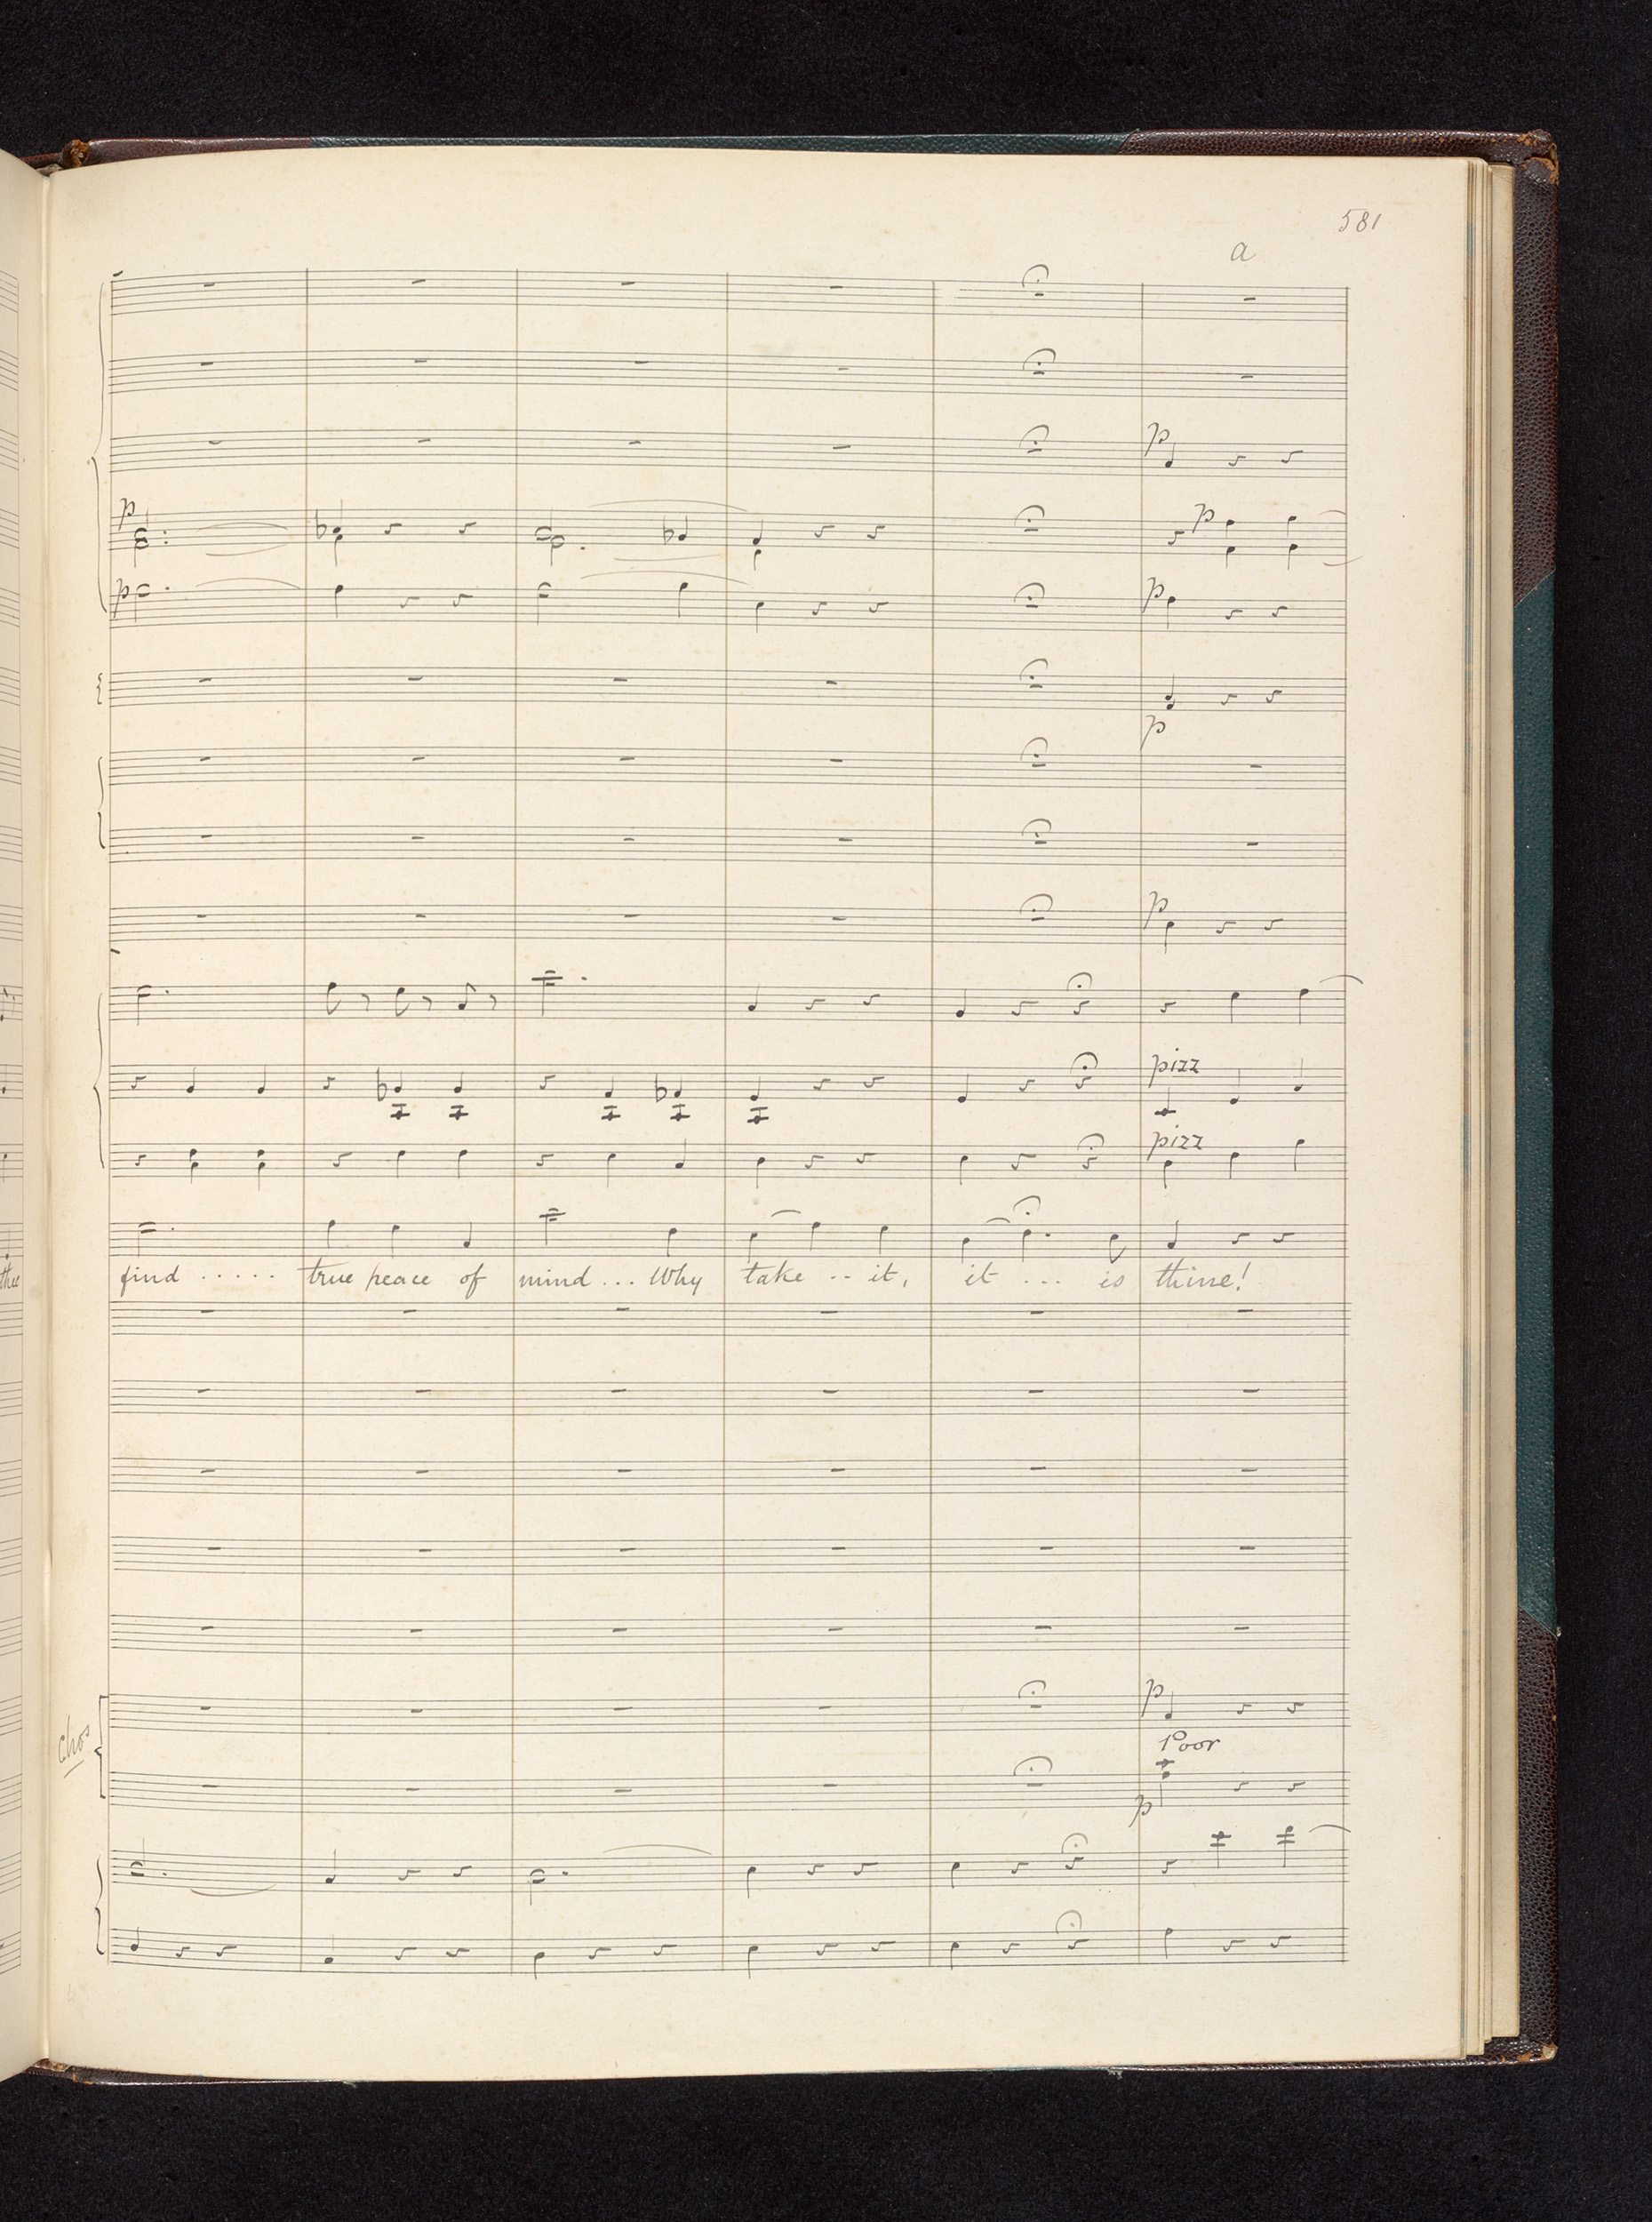 581
a
p
p
p
p
p
p
p
pizz
pizz
thee
find ..... true peace of mind ... Why take .. it, it ... is thine!
p
Chos
Poor
p